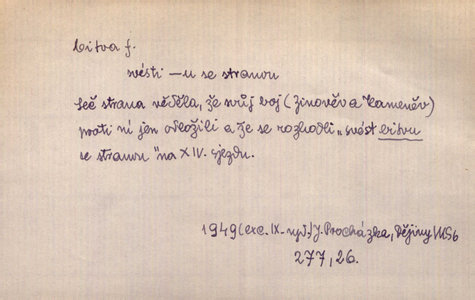 bitva f.
svésti –u se stranou
Leč strana věděla, že svůj boj (Zinověv a Kameněv)
proti ní jen odložili a že se rozhodli „svést bitvu
se stranou" na XIV. sjezdu.
1949 (exc. IX. vyd.) J. Procházka, Dějiny VKSb
277, 26.